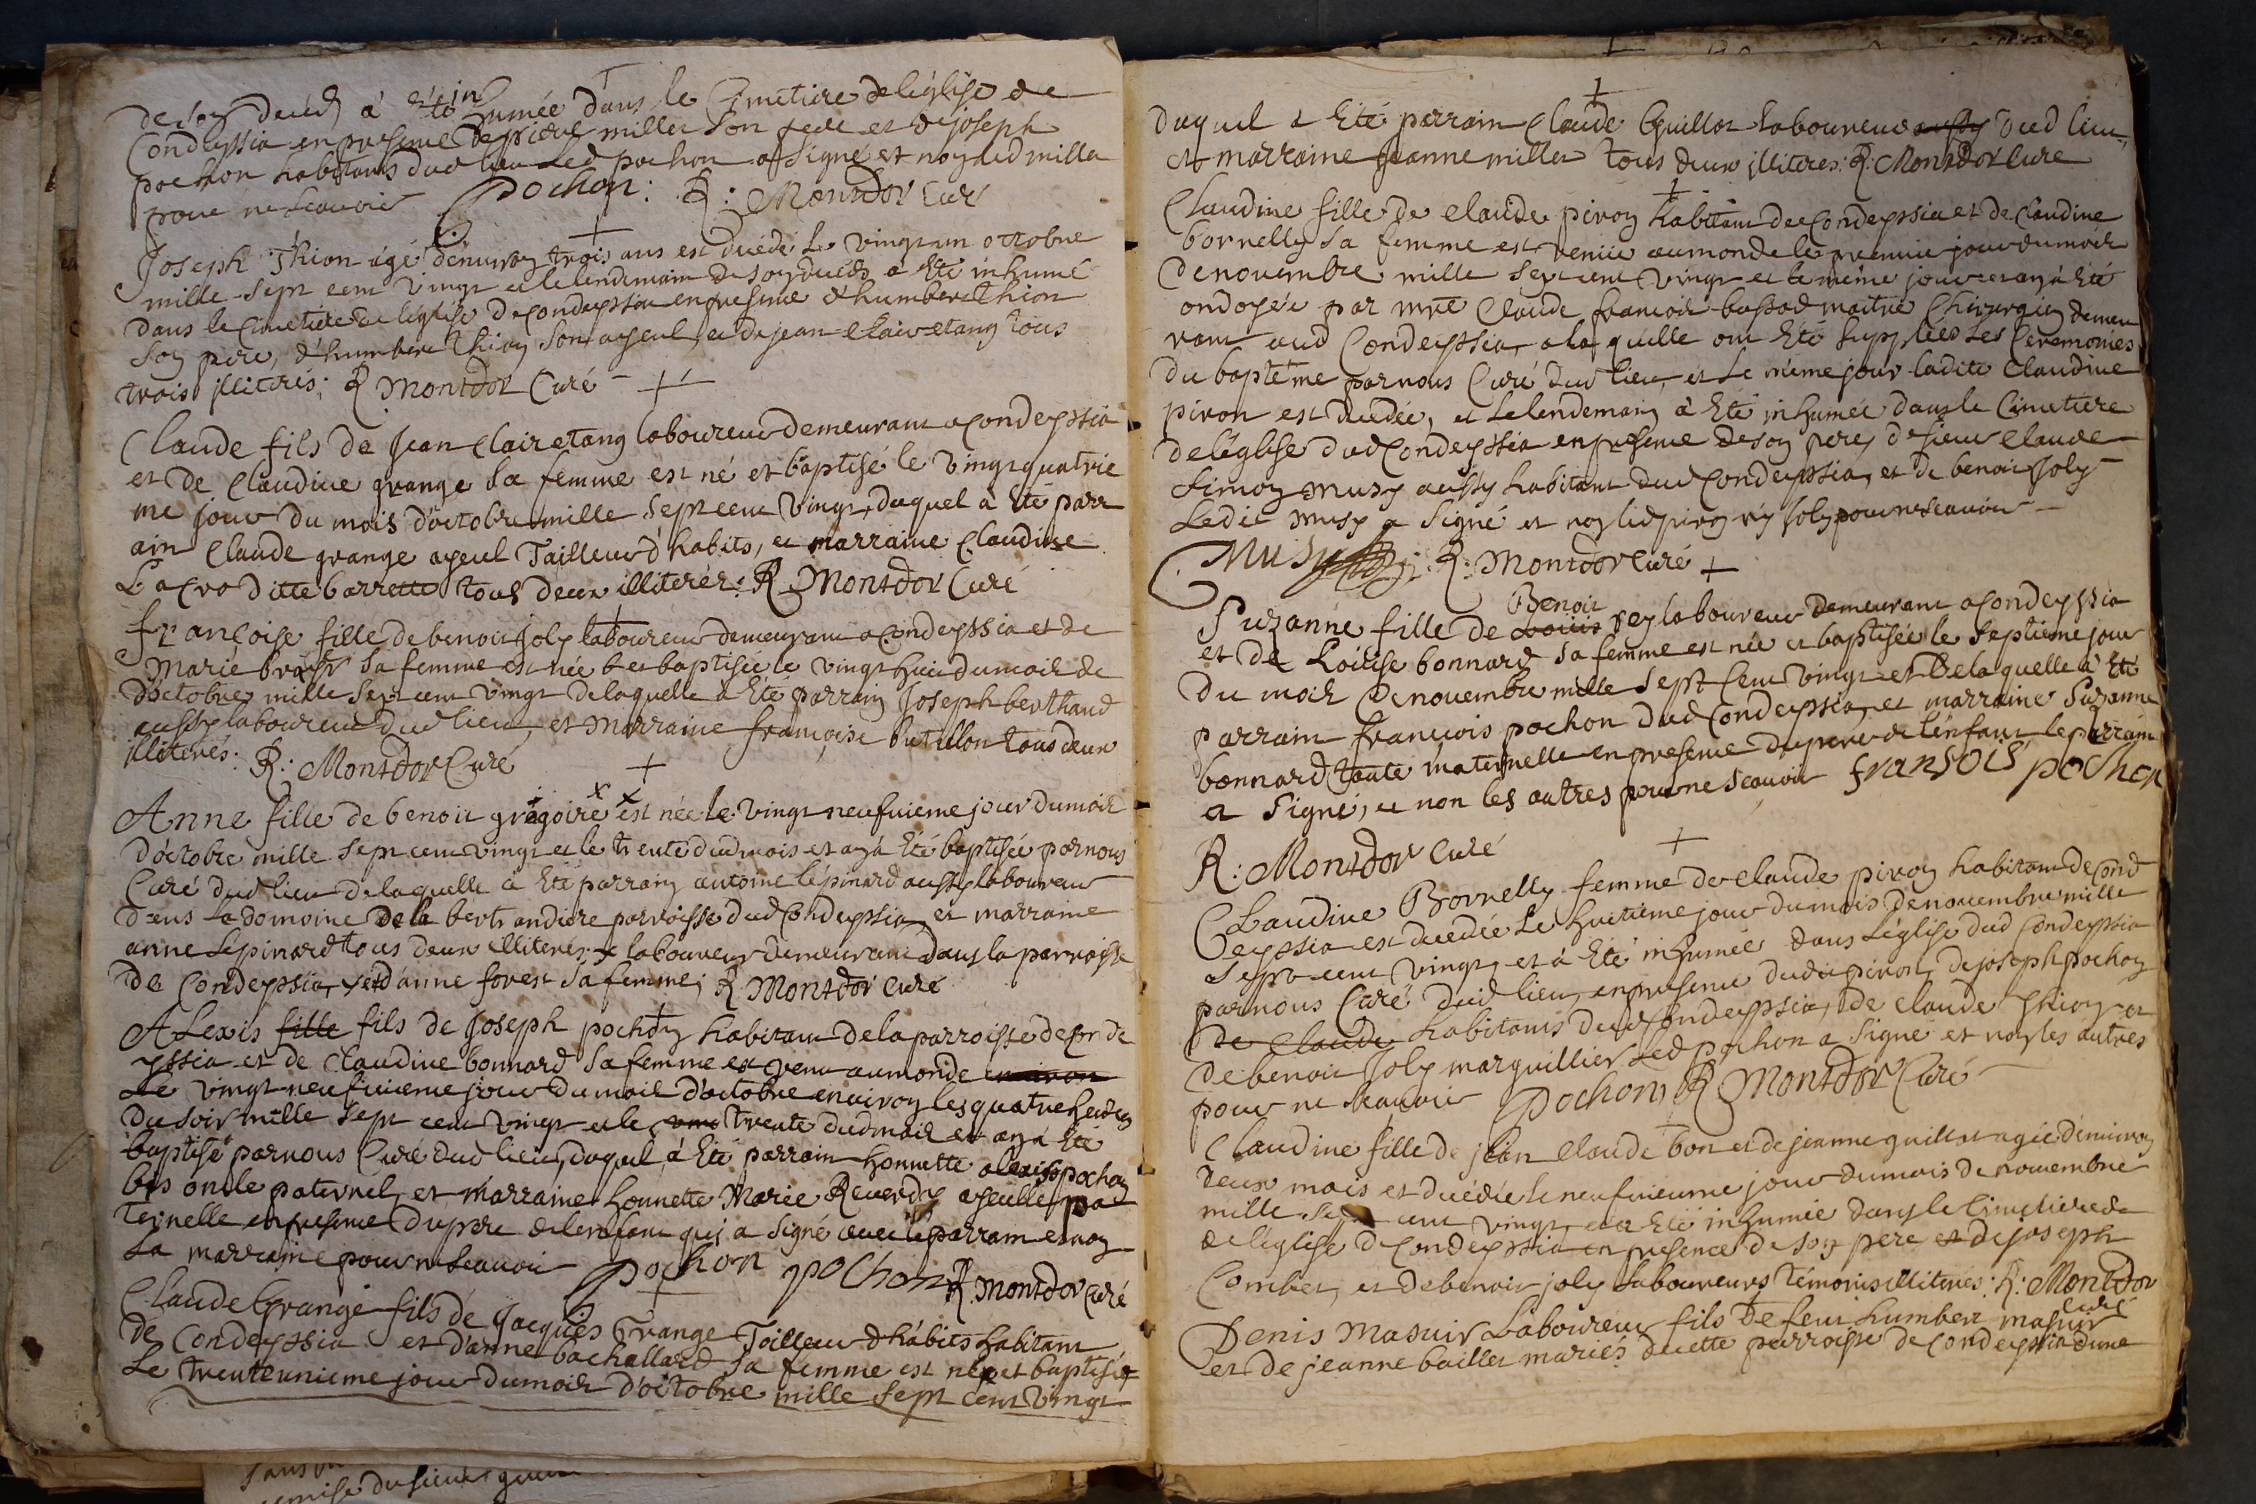 de son decéd à été inhumée dans le Cimetiere de léglise de
Condeyssia en presence de pierre millet son pere et de joseph
pochon habitans dud lieu Led pochon a signé et non led millet
pour ne scauoir Pochon: R: Montdor Curé
Joseph Thion agé denuiron trois ans est decédé le vingt un octobre
mille sept cent vingt et le lendemain de son decéds a été inhumé
dans le Cimetiere de léglise de condeyssia en presence d'humbert Thion
son pere, d'humbert Thion son ayeul, et de jean Clairetang tous
trois illiterés: R Montdor Curé
Claude fils de Jean Clairetang laboureur demeurant a condeyssia
et de Claudine grange sa femme est né et baptisé le vingt quatrie
me jour du mois d'octobre mille sept cent vingt, duquel à été parr
ain Claude grange ayeul Tailleur d'habits, et marraine Claudine
Lacro ditte barrette tous deux illiterés: R Montdor Curé
françoise fille de benoit Joly laboureur demeurant a condeyssia et de
Marie sa femme est née et baptisée le vingt huit du mois de
d'octobre mille sept cent vingt de laquelle à été parrain Joseph berthaud
aussy laboureur dud lieu, et marraine françoise butillon tous deux
illiterés: R: Montdor Curé
Anne fille de benoit gregoire est née le vingt neufuieme jour du mois
d'octobre mille sept cent vingt et le trente dud mois et an à été baptisée par nous
Curé dud lieu de laquelle à été parrain antoine lépinard aussy laboureur
dans le domaine de la bertrandiere parroisse dud Condeyssia, et marraine
anne Lépinard tous deux illiterés; x laboureur demeurant dans la parroisse
de Condeyssia, et d'anne forest sa femme; R Montdor Curé
ALexis fille fils de Joseph pochon habitant de la parroisse de Conde
yssia et de Claudine bonnard sa femme est venu au monde enuiron
Le vingt neufuieme jour du mois d'octobre enuiron les quatre heures
du soir mille sept cent vingt et le trente dud mois et an à été
baptisé par nous Curé dud lieu, duquel à été parrain honnette alexis pochon
son oncle paternel, et marraine honnette Marie Reuerdy ayeulle pa
ternelle en presence du pere de lenfant qui a signé auec le parrain et non
La marraine pour ne scauoir Pochon pochon R. Montdor Curé
Claude Grange fils de Jacques Grange Tailleur d'habits habitant
de Condeyssia et d'anne bachallard sa femme est né et baptisé
Le trente unieme jour du mois d'octobre mille sept cent vingt
duquel a été parrain Claude Guillot laboureur aussy dud lieu,
et marraine Jeanne millet tous deux illiterés: R: Montdor Curé
Claudine fille de claude piron habitant de Condeyssia et de Claudine
bornelly sa femme est venüe au monde le premier jour du mois
de nouembre mille sept cent vingt et le même jour et an à été
ondoyée par mre Claude françois bassod maitre Chirurgien demeu
rant aud Condeyssia, a laquelle ont été suppléés les Cérémonies
du baptême par nous Curé dud lieu, et le même jour ladite Claudine
piron est decédée, et le lendemain à été inhumée dans le Cimetiere
de léglise dud Condeyssia en presence de son pere, de sieur Claude
simon musy aussy habitant dud Condeyssia, et de benoit Joly
Ledit musy a signé et non led piron ny Joly pour ne scauoir
Musy R: Montdor Curé
Benoit
Suzanne fille de rey laboureur demeurant a condeyssia
et de Loüise bonnard sa femme est née et baptisée le septieme jour
du mois de nouembre mille sept cent vingt et de laquelle à été
parrain françois pochon dud Condeyssia, et marraine Suzanne
bonnard tante maternelle en presence du pere de lénfant, le parrain
a signé, et non les autres pour ne scauoir fransois pochon
R: Montdor Curé
Claudine Bornelly femme de claude piron habitant de Cond
eyssia est decédée le huitieme jour du mois de nouembre mille
sept cent vingt, et à été inhumée dans l'église dud Condeyssia
par nous Curé dud lieu, en presence dudit piron, de joseph pochon
de Claude habitants dud Condeyssia, de claude Thion et
de benoit Joly marguillier Led pochon a signé et non les autres
pour ne scauoir Pochon R Montdor Curé
Claudine fille de jean Claude bon et de jeanne guillot agée denuiron
deux mois et decédée le neufuieme jour du mois de nouembre
mille sept cent vingt, et à été inhumée dans le Cimetiere de
de léglise de Condeyssia en presence de son pere et de joseph
Combet, et de benoit joly laboureurs témoins illiterés: R: Montdor
Curé
Denis Masuir Laboureur fils de feu humbert masuir
et de jeanne baillet mariés de cette parroisse de condeyssia d'une